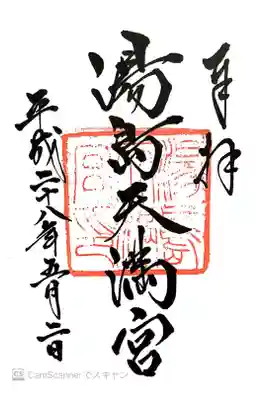 奉拝
湯島天満宮
平成二十八年五月二日
CS CamScanner でスキャン